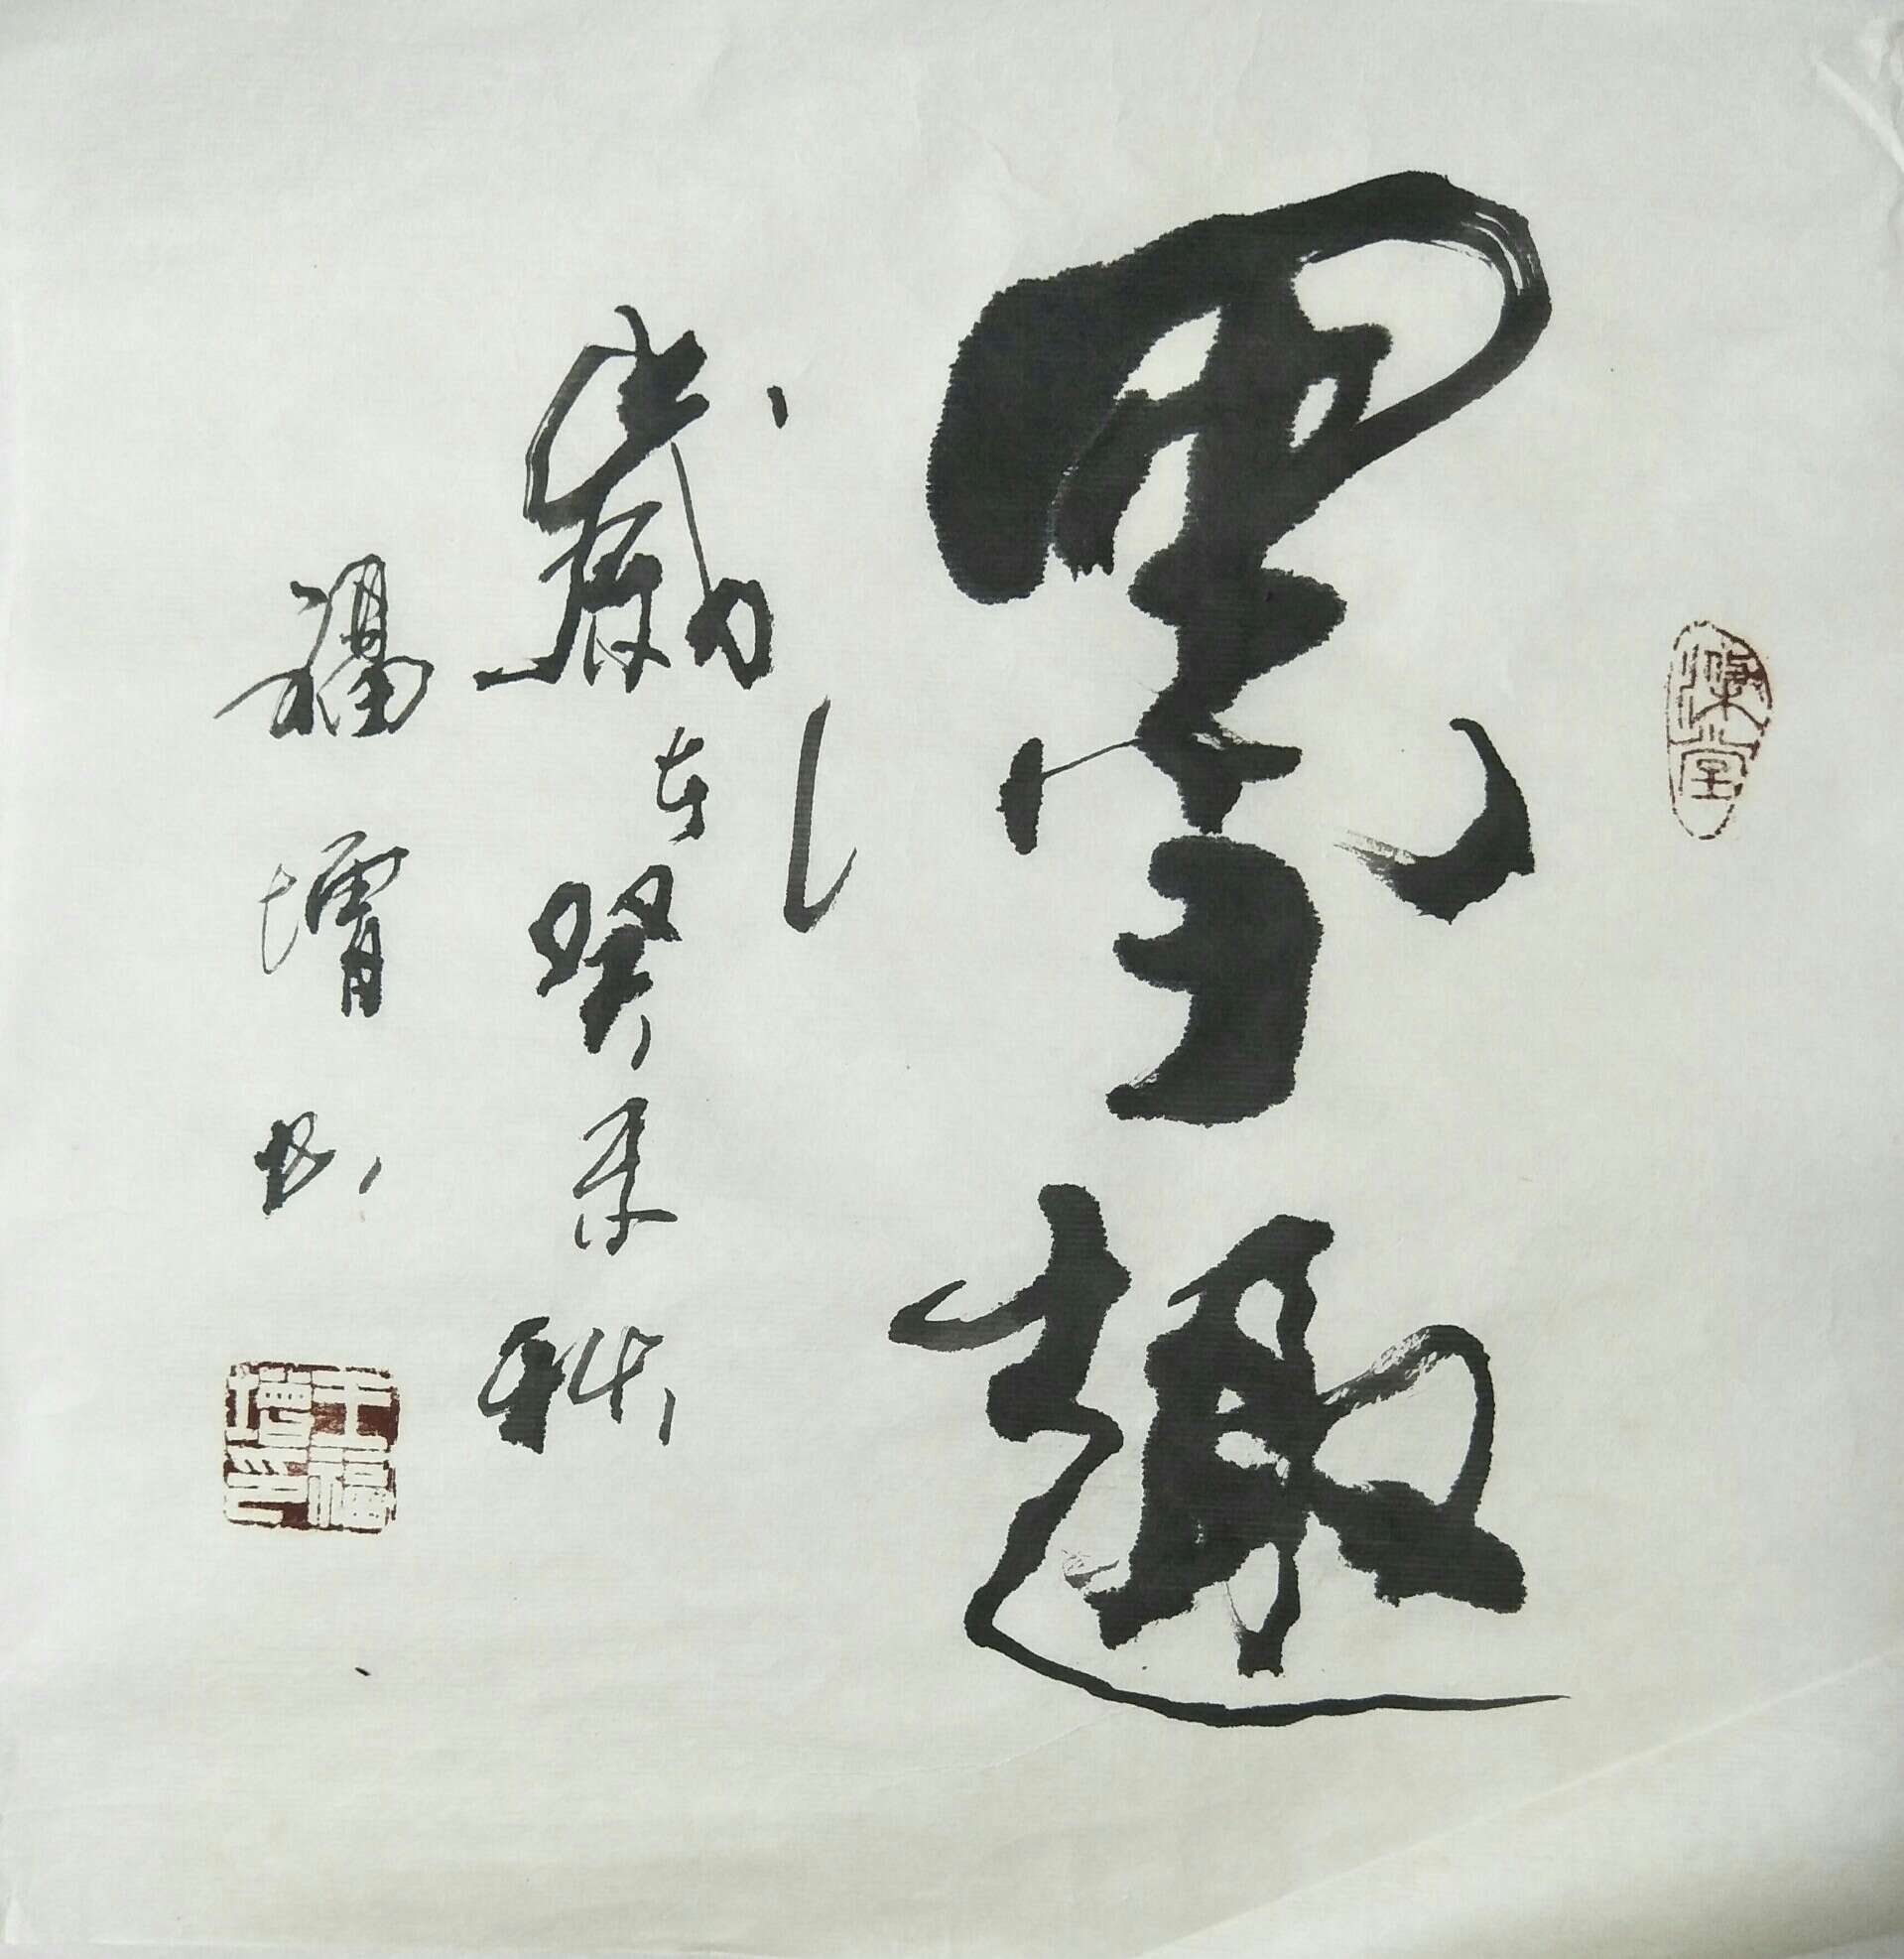 墨趣
歲在癸未秋
福增书
王福增印